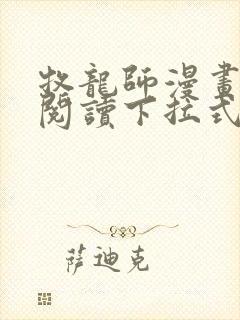 牧龍師漫畫
閱讀下拉式
萨迪克